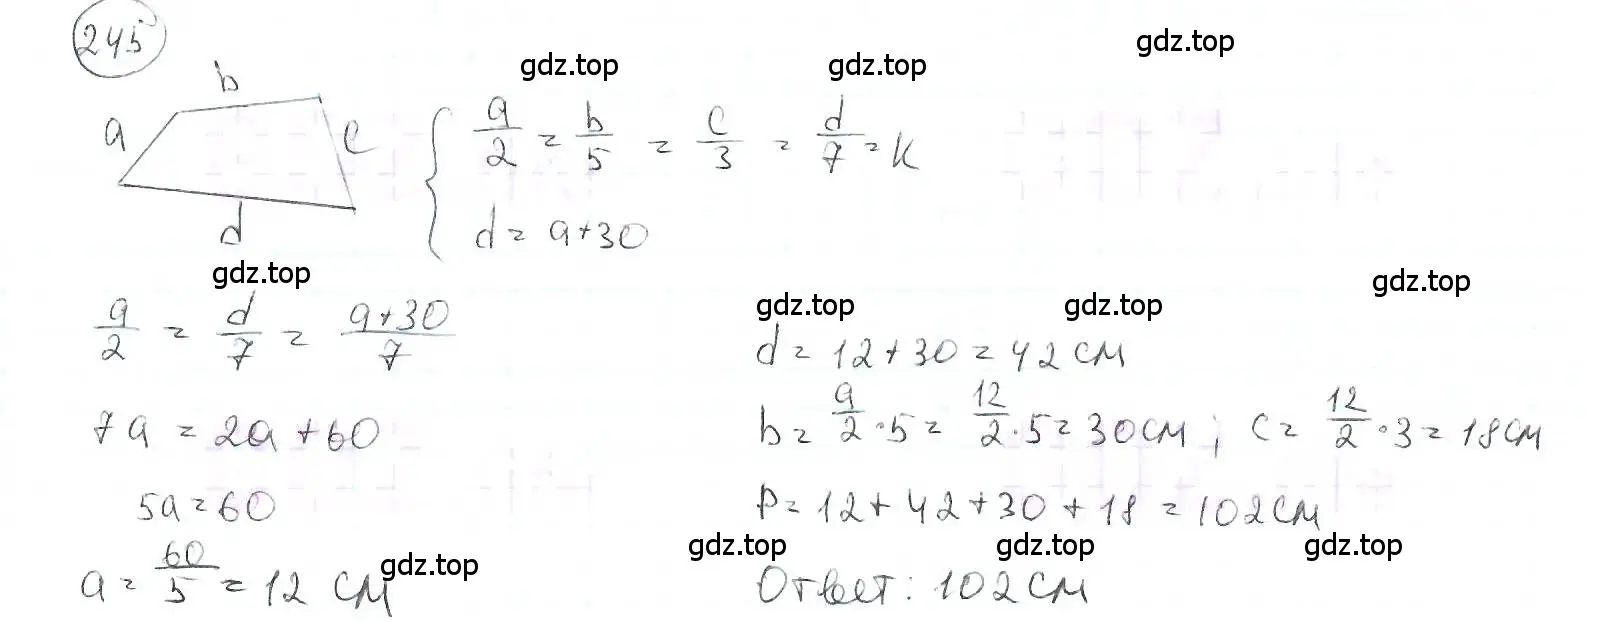 245
gdz.top gdz.top gdz.top
b
a c
a/2 = b/5 = c/3 = d/7 = k
d = a+30
d
gdz.top gdz.top gdz.top gdz.top
a/2 = d/7 = a+30/7
7a = 2a+60
5a=60
a= 60/5 = 12 см
d= 12+30=42 см
b= a/2 ·5= 12/2 ·5=30 см; c= 12/2 ·3=18 см
P=12+42+30+18=102 см
gdz.top gdz.top gdz.top gdz.top
Ответ: 102 см